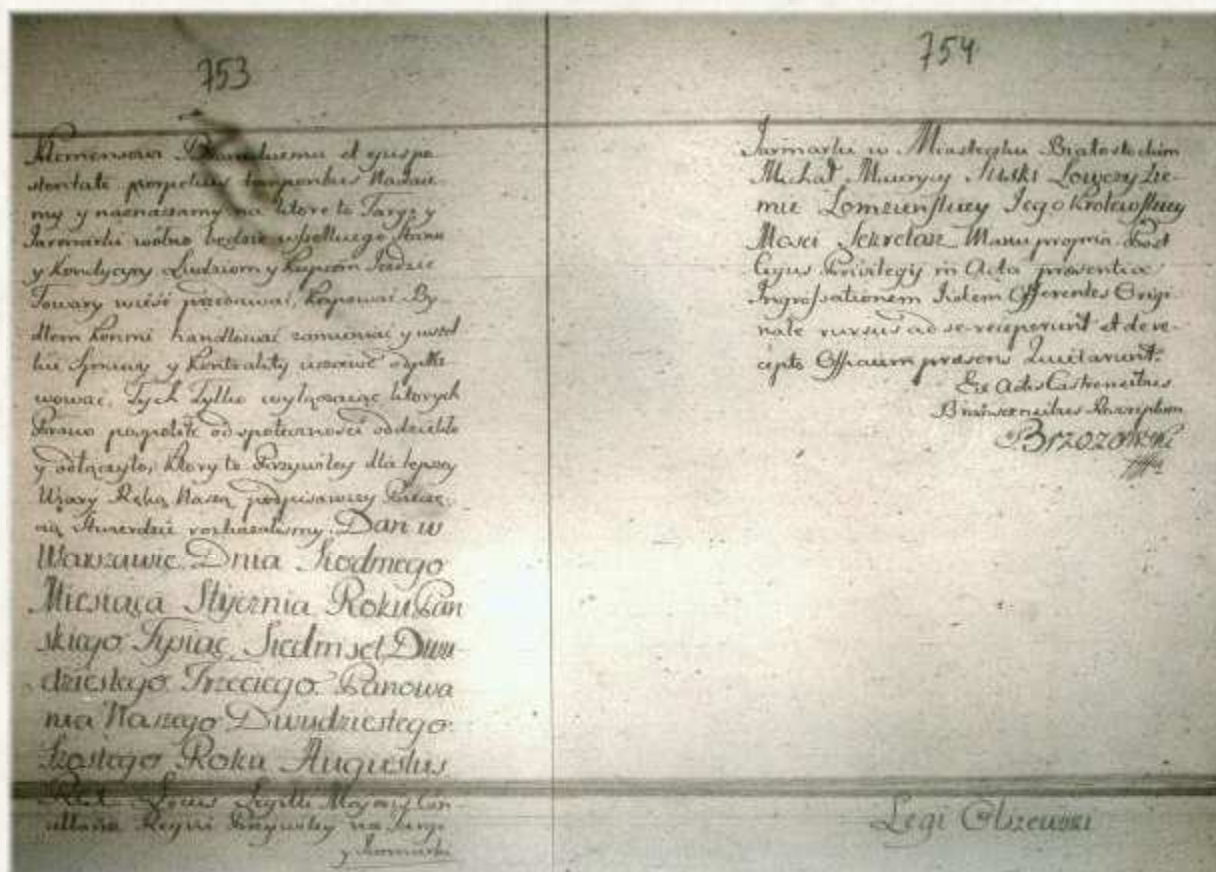 753
Klemensowi Branickiemu et ejus po
steritate perpetuis temporibus Nadaie
my y naznaczamy na ktore to Targi y
Jarmarki wolno będzie wszelkiego Stanu
y Kondycyi Ludziom y Kupcom
Towary wieść przedawać, kupować By
dłem końmi handlować zamieniać y wszel
kie y Kontrakty
Tych Tylko wyłączaiąc ktorych
Prawo pospolite od społeczności oddzieliło
y odłączyło, ktory to Przywiley dla lepszey
Wiary Ręką Naszą podpisawszy Pieczę-
cią Stwierdzić rozkazaliśmy. Dan w
Warszawie Dnia Siodmego
Miesiąca Stycznia Roku Pan
skiego Tysiąc Siedmset Dwu
dziestego Trzeciego Panowa
nia Naszego Dwudziestego
Szostego Roku Augustus
Rex Locus Sigilli Can
Regni Przywiley na Targi
y Jarmarki
754
Jarmarki w Miasteczku Białostockim
Michał Maurycy Łowczy Zie-
mie Łomzenskiey Jego Krolewskiey
Mosci Sekretarz Manu propria Post
Cujus Privilegij in Acta praesentia
Ingrossationem Iidem Offerentes Origi
nale rursus ad se receperunt et de re-
cepto Officium praesens Quietarunt.
Ex Actis Castrensibus
Branscensibus
Brzozowski
Legi Olszewski